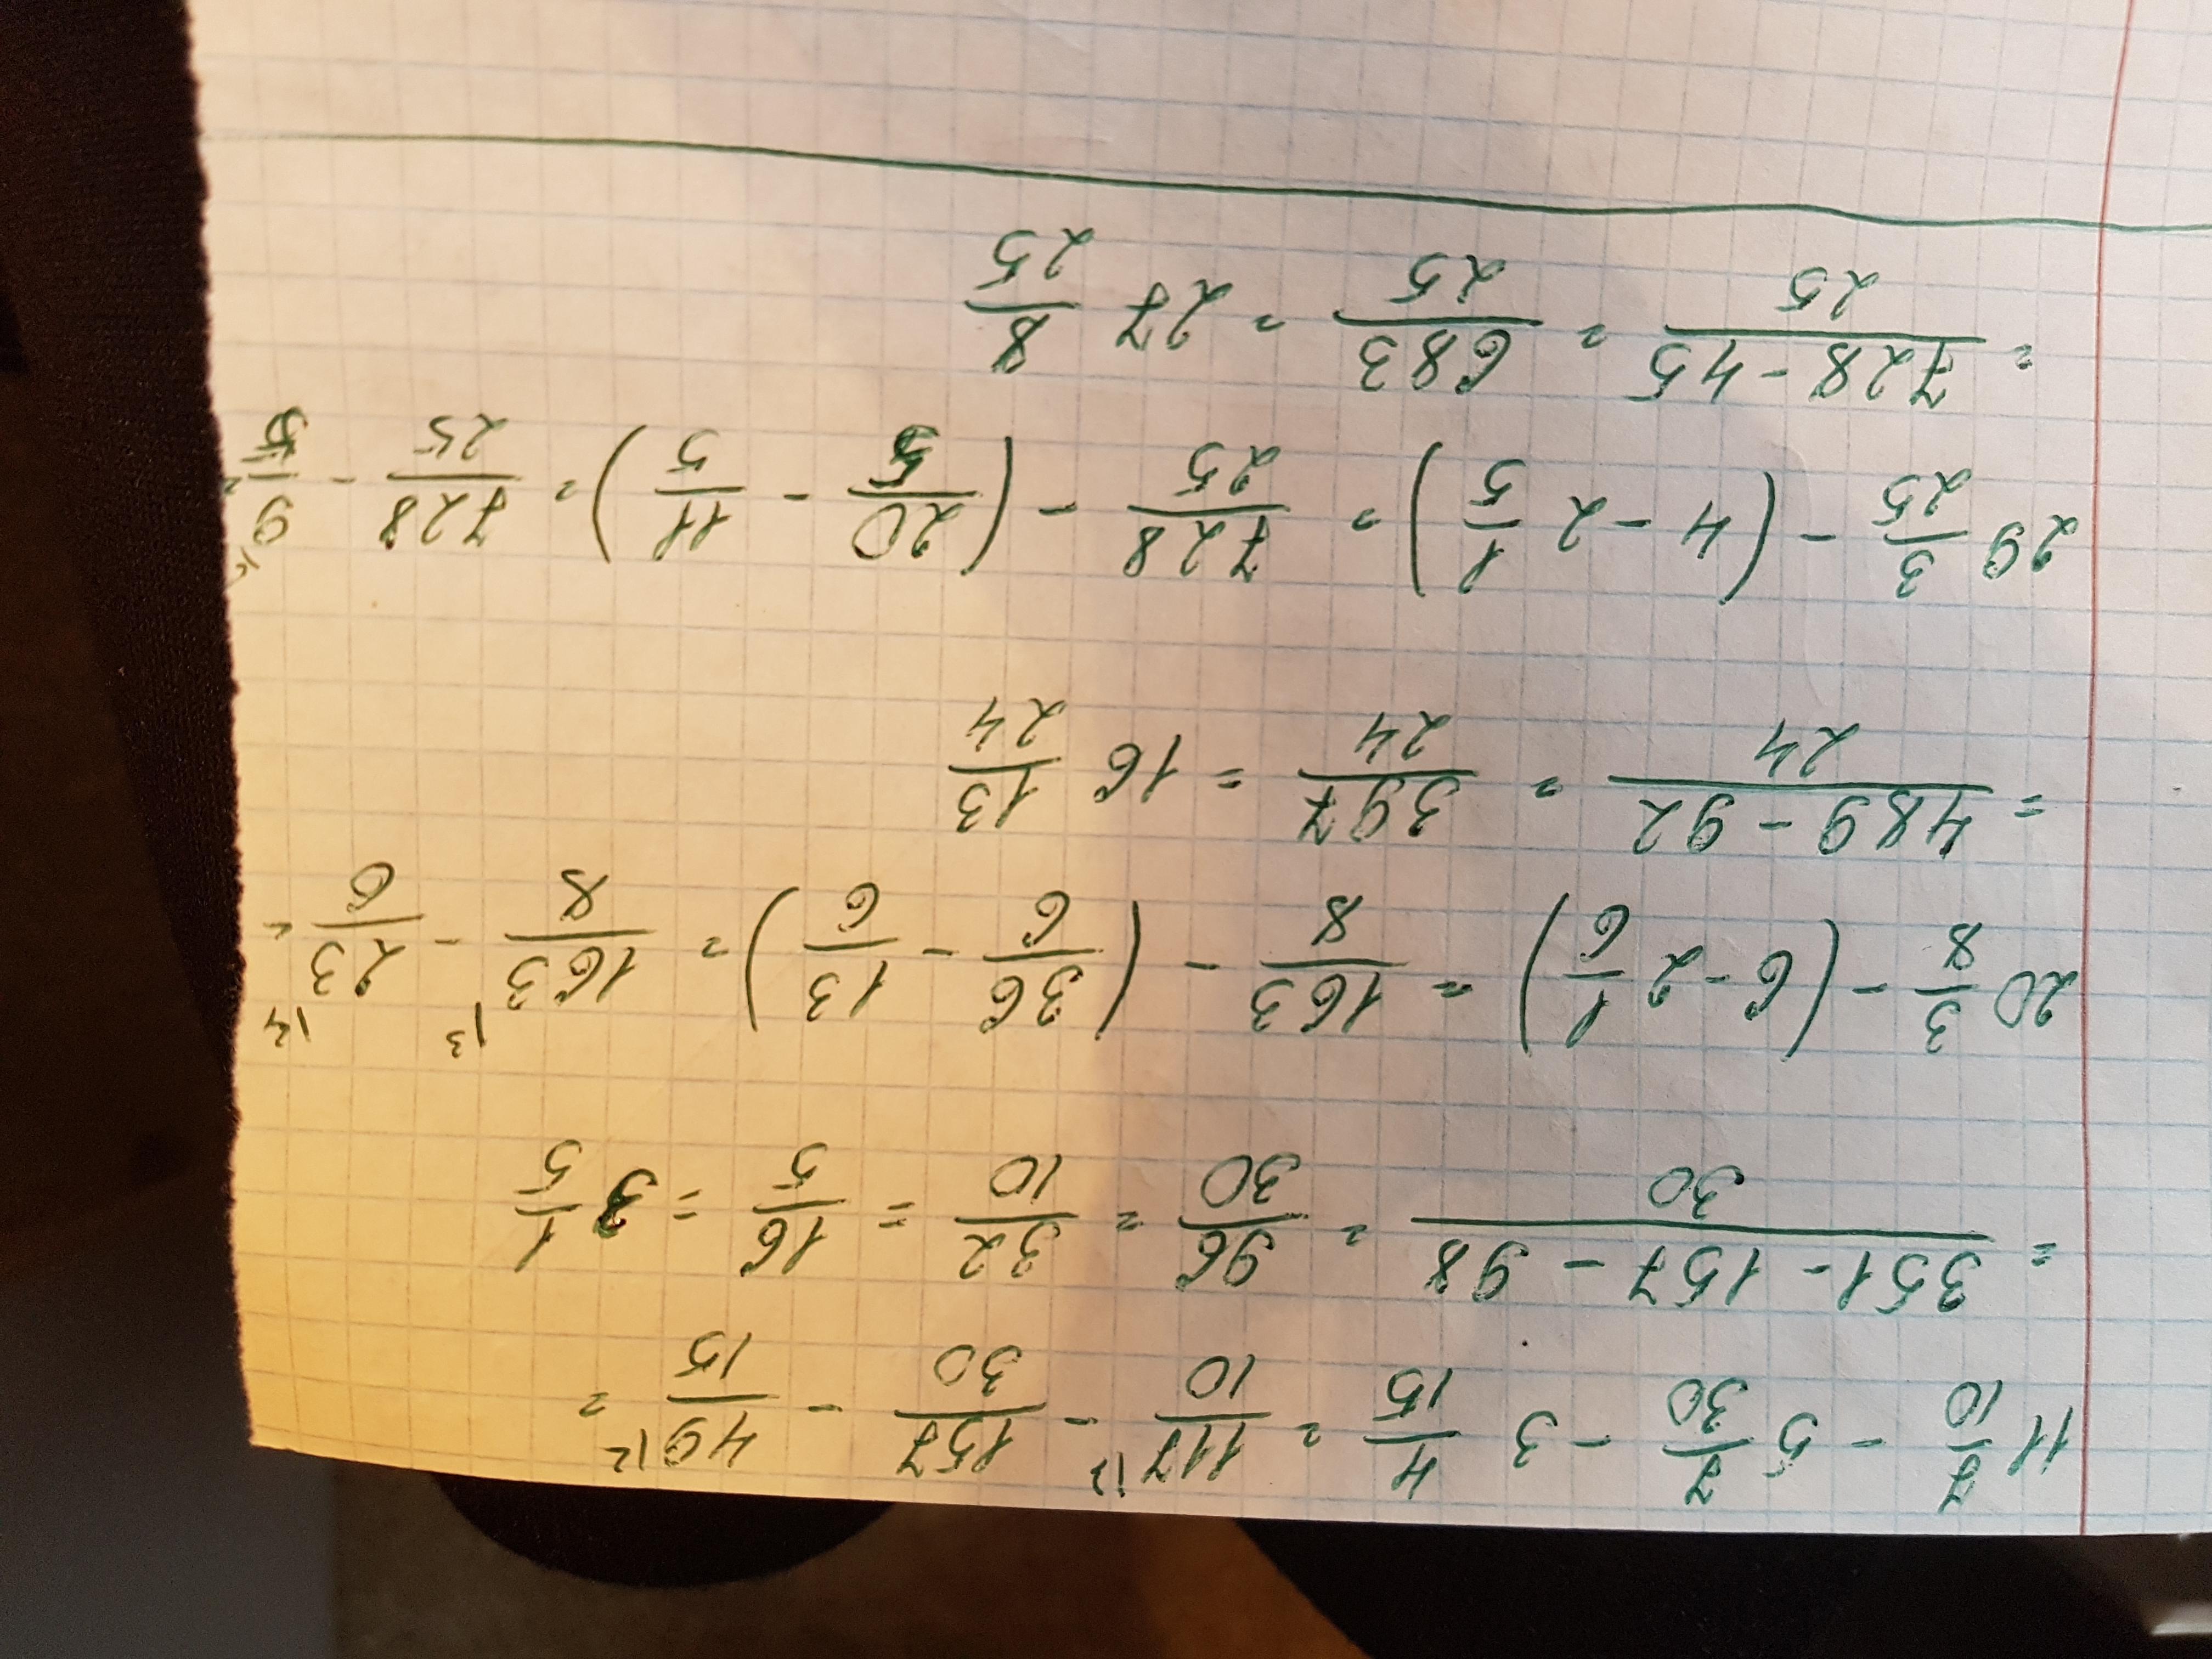 11 7/10 - 5 7/30 - 3 4/15 = 117/10 - 157/30 - 49/15 =
= (351 - 157 - 98)/30 = 96/30 = 32/10 = 16/5 = 3 1/5
20 3/8 - (6 - 2 1/6) = 163/8 - (36/6 - 13/6) = 163/8 - 23/6 =
= (489 - 92)/24 = 397/24 = 16 13/24
29 3/25 - (4 - 2 1/5) = 728/25 - (20/5 - 11/5) = 728/25 - 9/5 =
= (728 - 45)/25 = 683/25 = 27 8/25